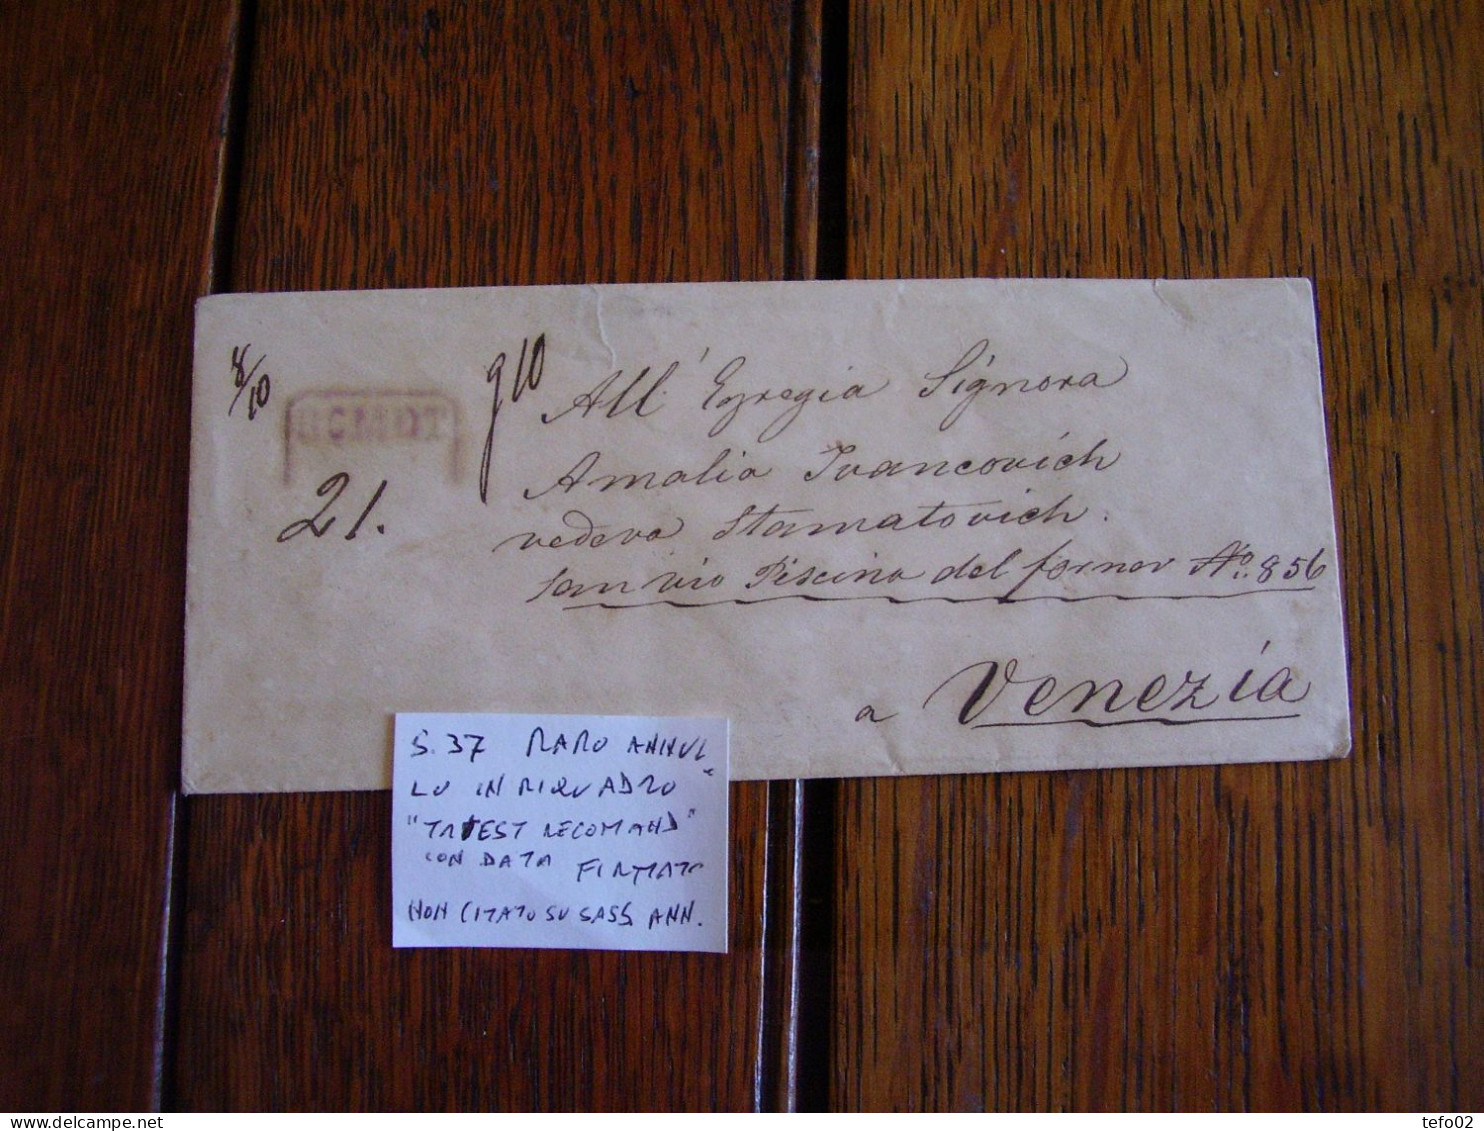 8/10
RCMDT
910
21.
All' Egregia Signora
Amalia Ivancovich
vedova Stamatovich.
San Vio Piscina del forner No. 856
a Venezia
S. 37 RARO ANNUL
LO IN RIQUADRO
"TRIEST RECOMAND"
CON DATA FIRMATO
NON CITATO SU SASS ANN.
tefo02